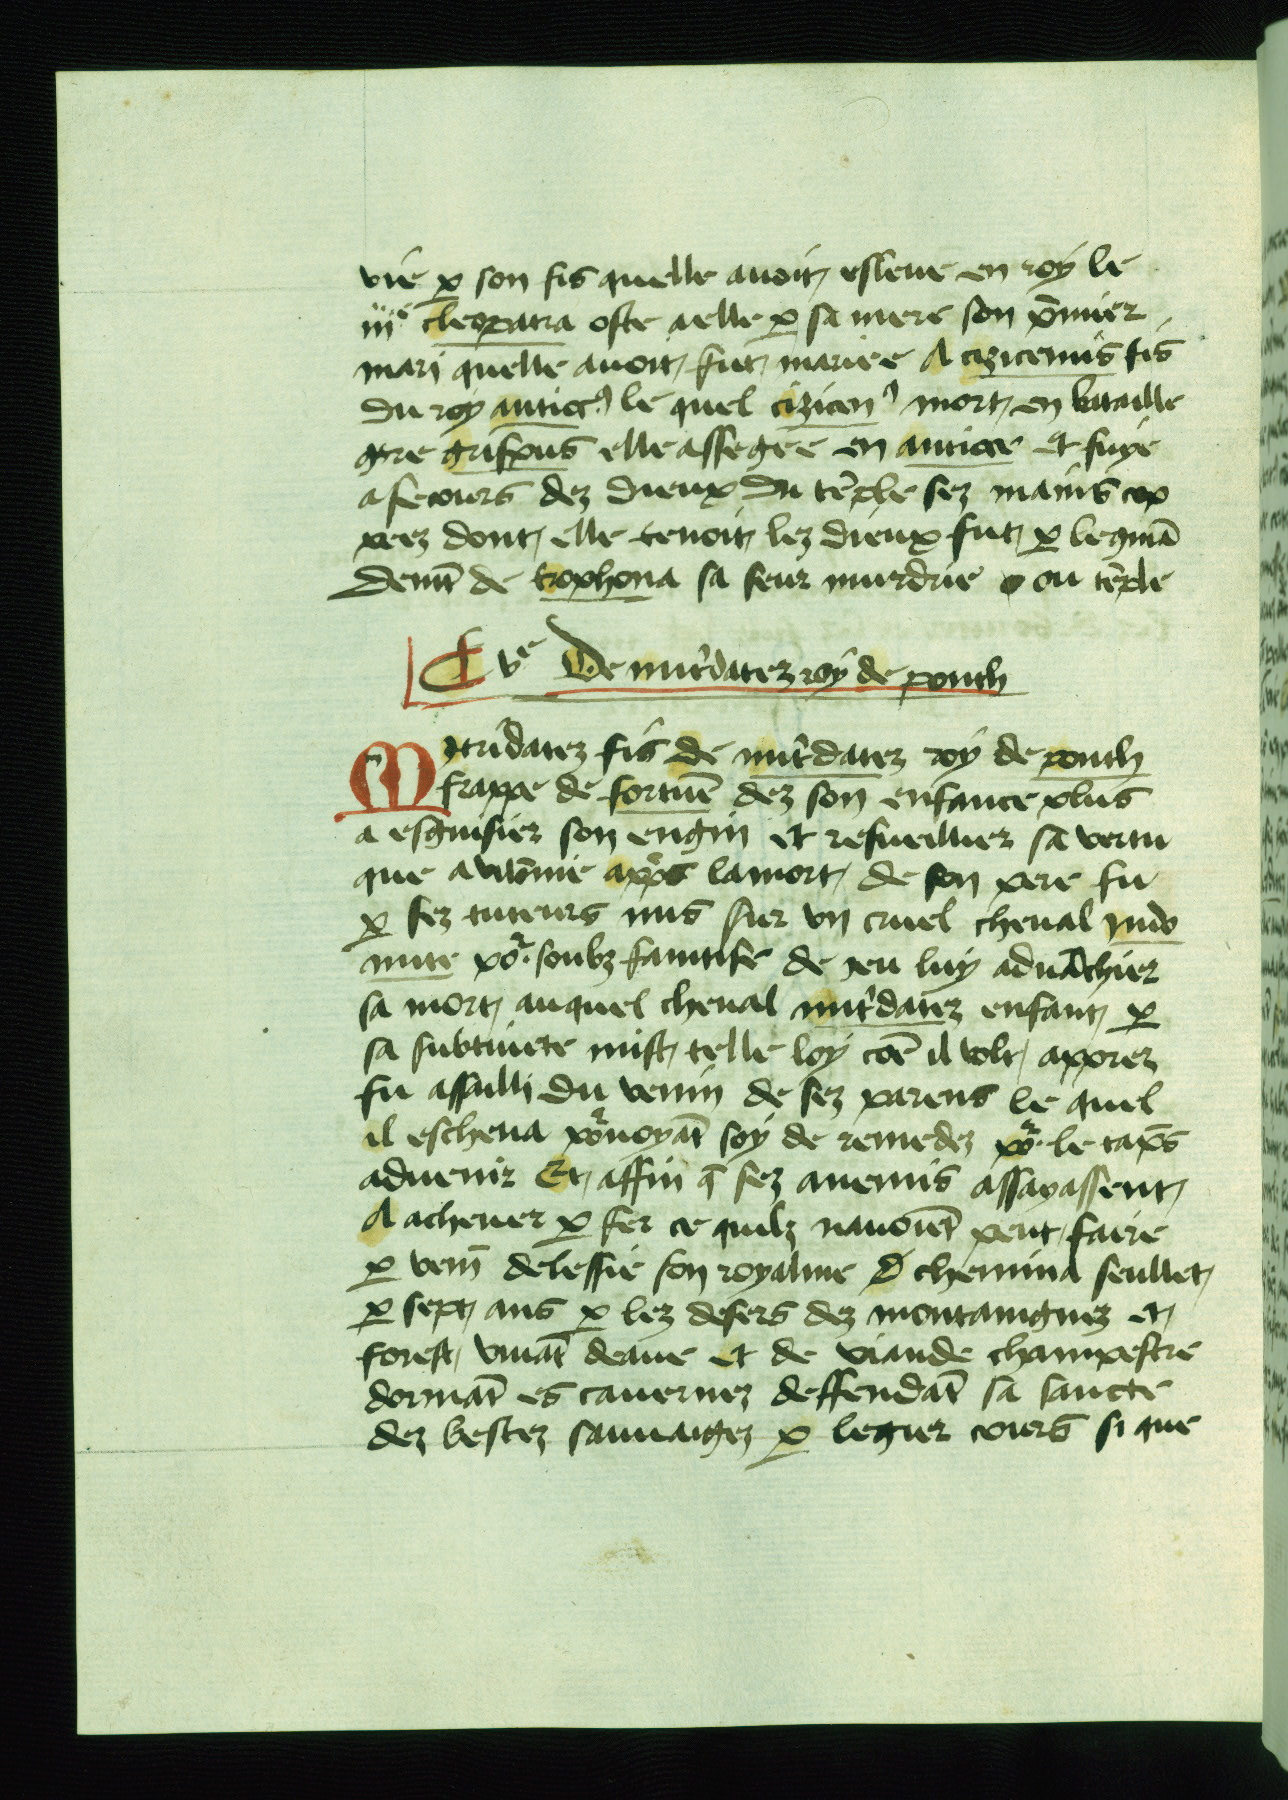 vie ꝑ son fis quelle avoit esleue en roy le
iiiᵉ cleopatra oste a elle ꝑ sa mere son p̄mier
mari quelle avoit fut mariee A cizicenus fis
du roy antiocꝰ le quel cizicenꝰ mort en bataille
ꝯtre grifpus elle assegee en antioce et fuye
a secours dez dieux du tēple sez mains cop
peez dont elle tenoit lez dieux fut ꝑ le ꝯmā
demt̄ de trophona sa seur murdrie ou tēple
C vᵉ De mit̾datez roy de ponth
Mitridatez fis de mit̾datez roy de ponth
frappe de fortun̄e dez son enfance plus
a esguisier son engin et resueillier sa vertu
que a vilōnie appͬs la mort de son pere fu
ꝑ sez tuteurs mis sur vn cruel cheual indo
mite poͬ soubz faintise de jeu luy aduāchier
sa mort auquel cheual mit̾datez enfant ꝑ
sa subtiuete mist telle loy cōe il volt apprez
fu assalli du venin de sez parens le quel
il escheua poͬuoyāt soy de remedez poͬ le tāps
aduenir Et affin q̄ sez anemis assayassent
A acheuer ꝑ fer ce quilz nauoiēt peut faire
ꝑ veni̅ delessie son royalme chemina seullet
ꝑ sept ans ꝑ lez desers dez montaingnez et
forest viuāt deaue et de viande champestre
dormāt es cauernez deffendāt sa sancte
dez bestez sauuaigez ꝑ legier cours si que